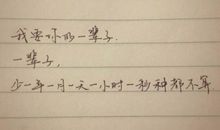 我要你的一辈子.
一辈子,
少一年一月一天一小时一秒种都不算